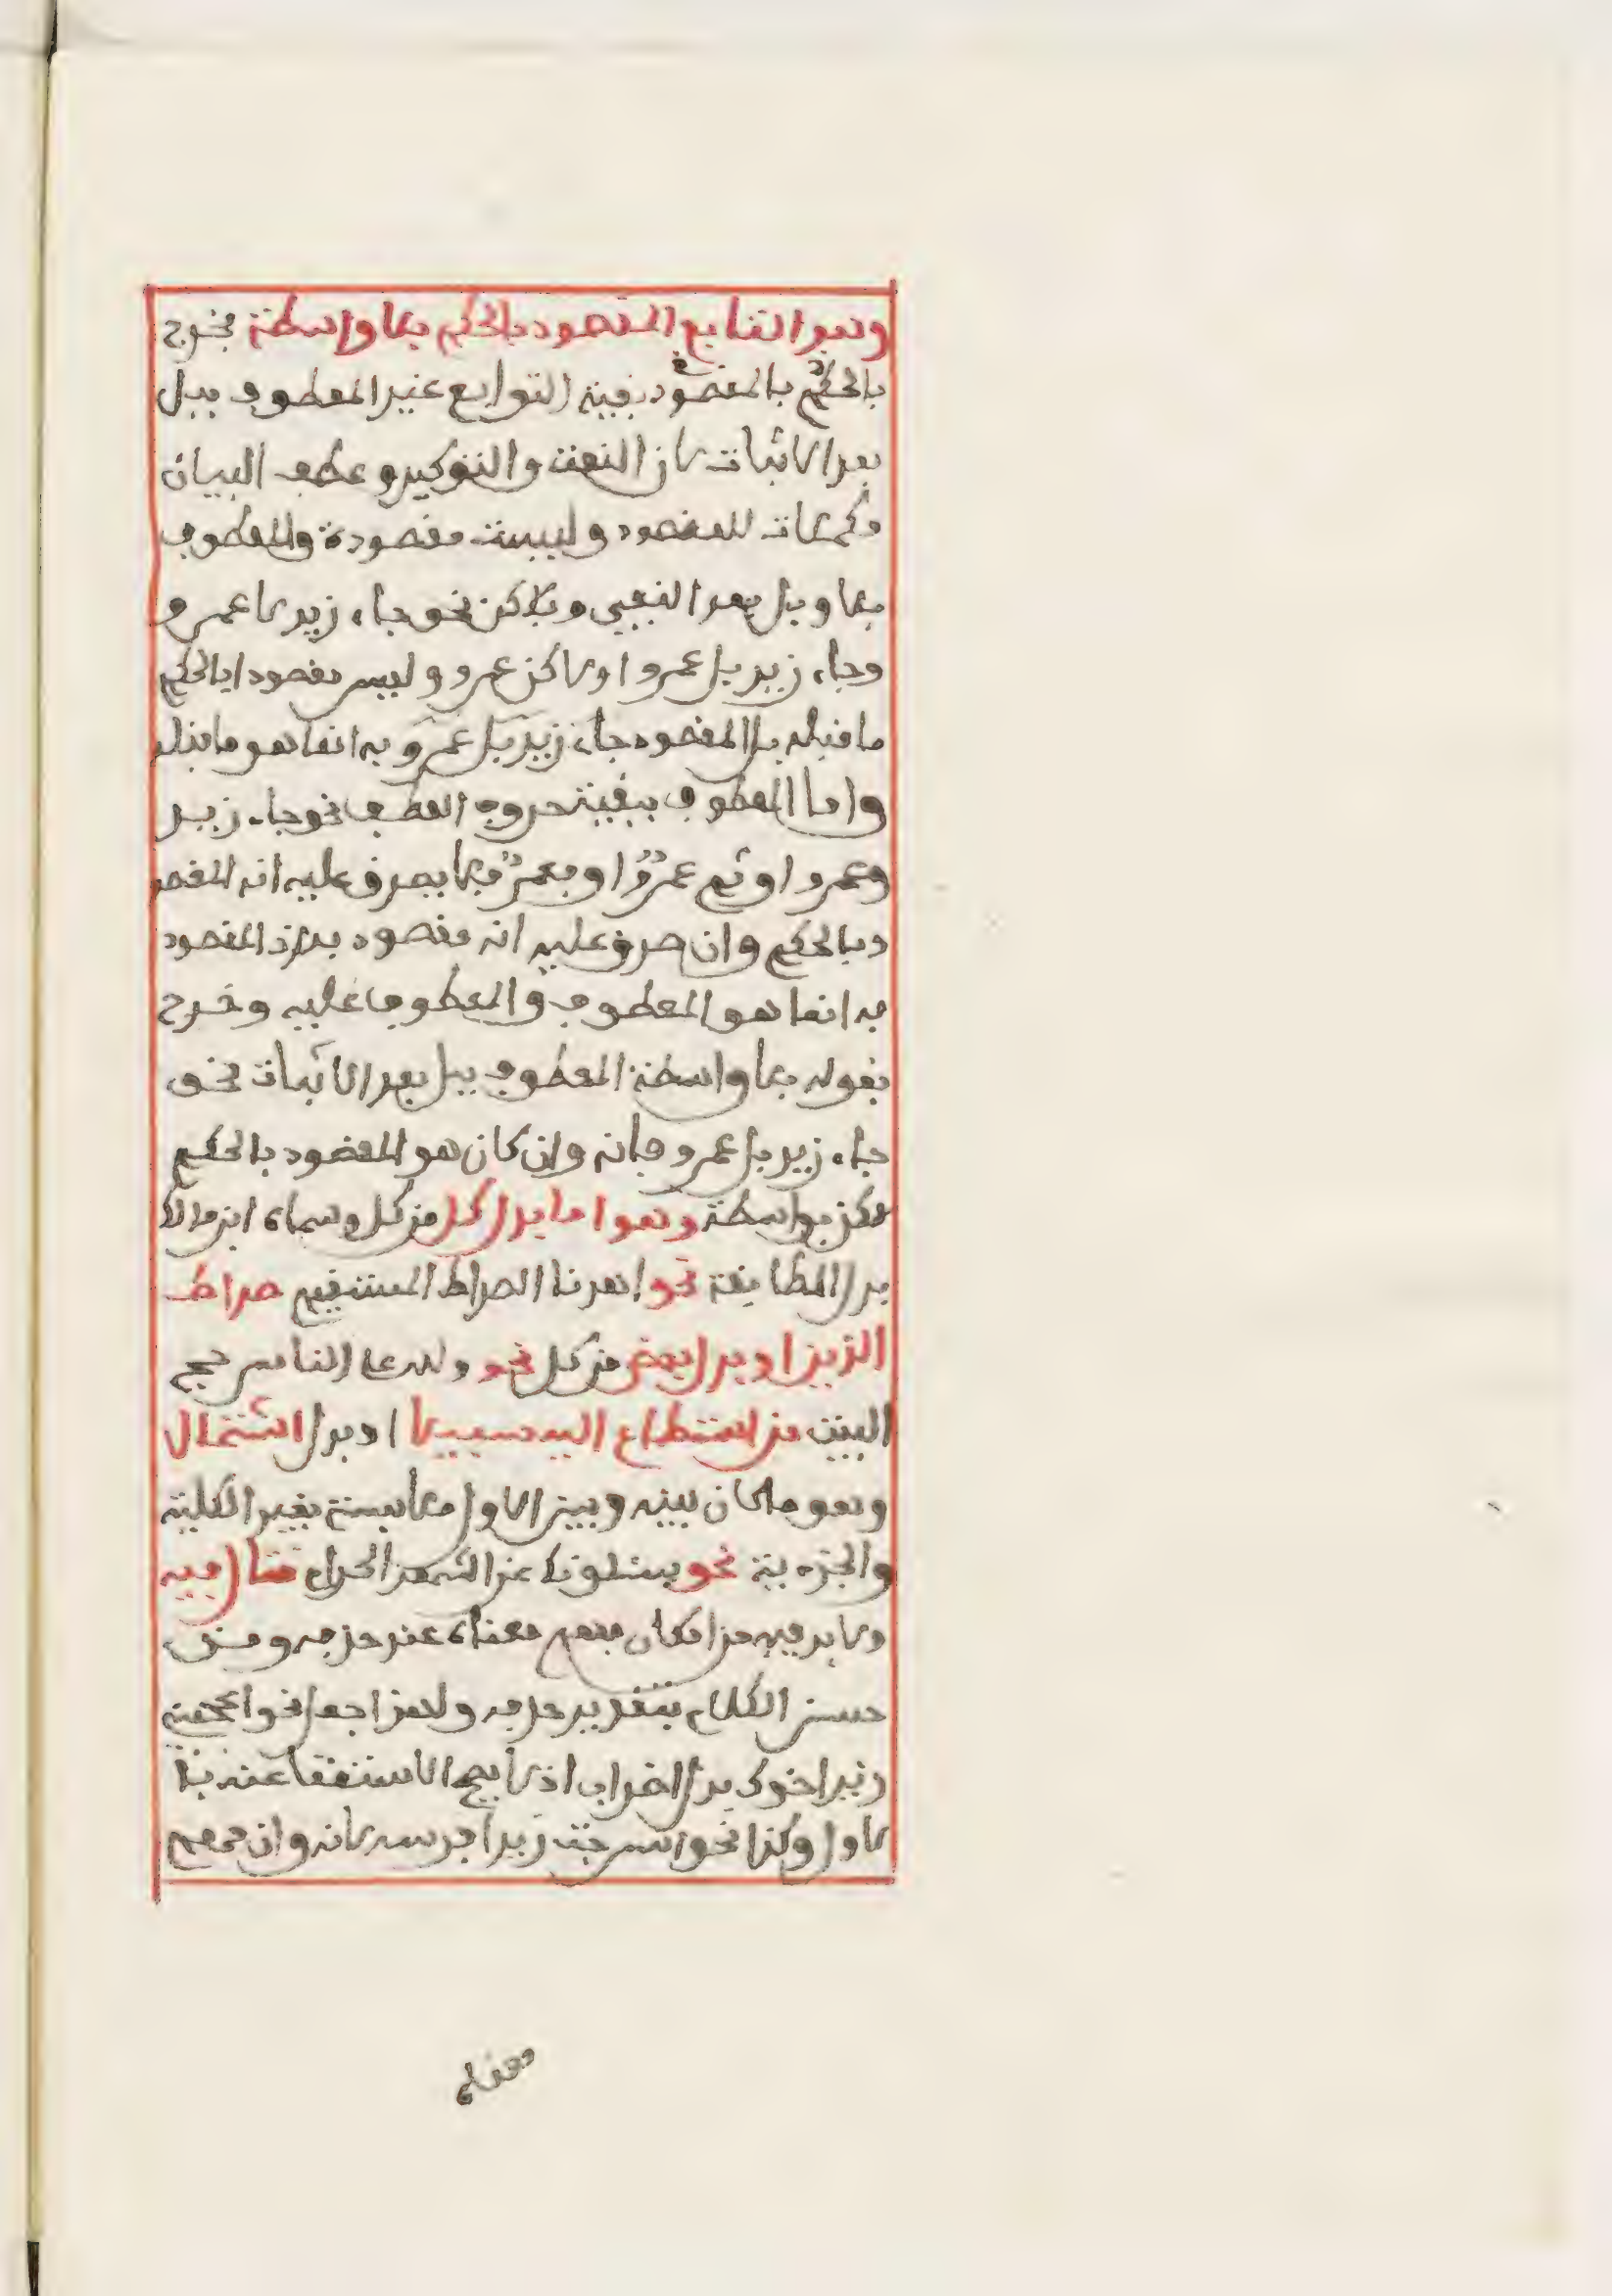 وهو التابع المقصود بالحكم بلا واسطة فخرج
بالحكم بالمقصود بقية التوابع غير المعطوف ببل
بعد الاثبات لان النعت والتوكيد وعطف البيان
مكملات للمقصود وليست مقصودة والمعطوف
بلا وبل بعد النفي وبلاكن نحو جاء زيد لا عمرو
وجاء زيد بل عمرو او لاكن عمرو وليس مقصودا بالحكم
ما قبله بل المقصود جاء زيد بل عمرو به انما هو ما قبله
واما المعطوف ببقية حروف العطف نحو جاء زيد
وعمرو او ثم عمرو او فعمرو فلا يصدق عليه انه المقصو
د بالحكم وان صدق عليه انه مقصود به لان المقصود
به انما هو المعطوف والمعطوف عليه وخرج
بقوله بلا واسطة المعطوف ببل بعد الاثبات نحو
جاء زيد بل عمرو فانه وان كان هو المقصود بالحكم
لاكن بواسطة وهو اما بدل كل من كل وسماه ابن مالك
بدل المطابقة نحو اهدنا الصراط المستقيم صراط
الذين او بدل بعض من كل نحو ولله على الناس حج
البيت من استطاع اليه سبيلا او بدل اشتمال
وهو ما كان بينه وبين الاول ملابسة بغير الكلية
والجزءية نحو يسئلونك عن الشهر الحرام قتال فيه
ولا بد فيه من امكان فهم معناه عند حذفه ومن
حسن الكلام بتقدير حذفه ولهذا جعل نحو اعجبني
زيد اخوك بدل اضراب اذ لا يصح الاستغنا عنه با
لاول وكذا نحو اسرجت زيدا فرسه لانه وان فهم
معناه